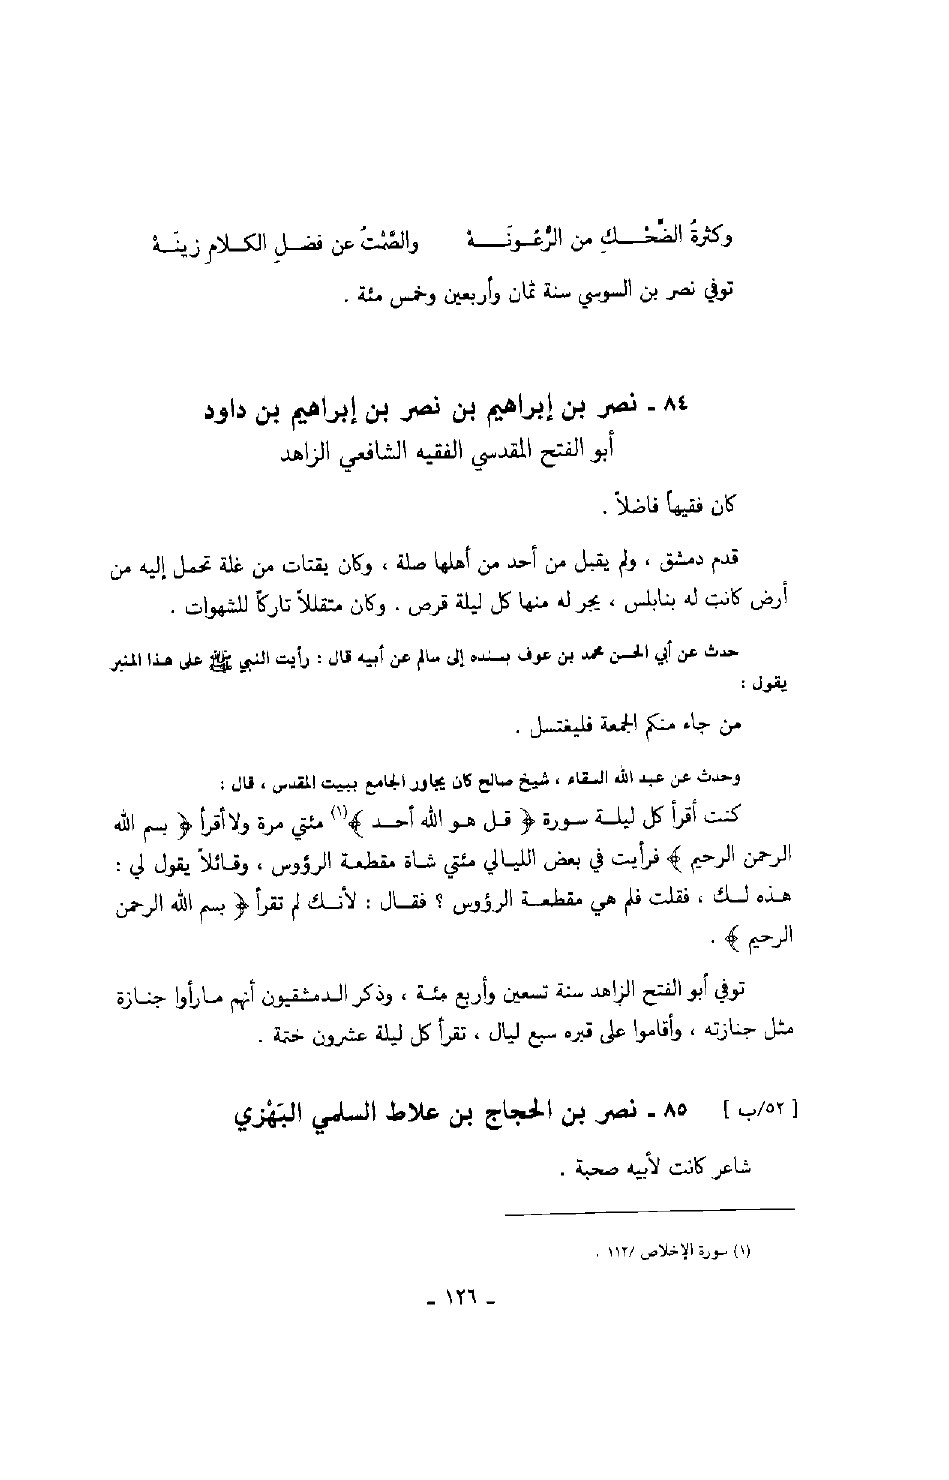 وكثرةُ الضَّحْـكِ من الرُّعُـونَـةْ    والصَّمْتُ عن فضـلِ الكـلامِ زينَـةْ
توفي نصر بن السوسي سنة ثمان وأربعين وخمس مئة .
٨٤ ـ نصر بن إبراهيم بن نصر بن إبراهيم بن داود
أبو الفتح المقدسي الفقيه الشافعي الزاهد
كان فقيهاً فاضلاً .
قدم دمشق ، ولم يقبل من أحد من أهلها صلة ، وكان يقتات من غلة تحمل إليه من
أرض كانت له بنابلس ، يجر له منها كل ليلة قرص . وكان متقللاً تاركاً للشهوات .
حدث عن أبي الحسن محمد بن عوف بسنده إلى سالم عن أبيه قال : رأيت النبي ﷺ على هذا المنبر
يقول :
من جاء منكم الجمعة فليغتسل .
وحدث عن عبد الله السقاء ، شيخ صالح كان يجاور الجامع ببيت المقدس ، قال :
كنت أقرأ كل ليلـة سورة ﴿ قـل هـو الله أحـد ﴾(١) مئتي مرة ولا أقرأ ﴿ بسم الله
الرحمن الرحيم ﴾ فرأيت في بعض الليالي مئتي شاة مقطعة الرؤوس ، وقائلاً يقول لي :
هذه لـك ، فقلت فلم هي مقطعـة الرؤوس ؟ فقـال : لأنـك لم تقرأ ﴿ بسم الله الرحمن
الرحيم ﴾ .
توفي أبو الفتح الزاهد سنة تسعين وأربع مئـة ، وذكر الـدمشقيون أنهم مـا رأوا جنـازة
مثل جنازته ، وأقاموا على قبره سبع ليال ، تقرأ كل ليلة عشرون ختمة .
[ ٥٢/ب ] ٨٥ ـ نصر بن الحجاج بن علاط السلمي البَهْزي
شاعر كانت لأبيه صحبة .
(١) سورة الإخلاص /١١٢ .
ـ ١٢٦ ـ